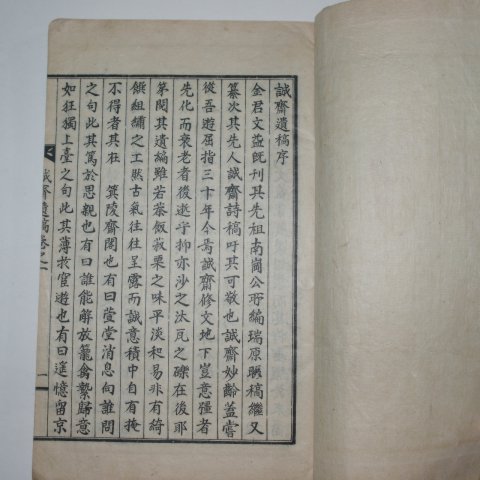 誠齋遺稿序
金君文益旣刊其先祖南崗公所編瑞原聯稿繼又
纂次其先人誠齋詩稿吁其可敬也誠齋妙齡蓋嘗
從吾遊屈指三十年今焉誠齋修文地下豈意彊者
先化而衰老者後逝乎抑亦沙之汰瓦之礫在後耶
第閱其遺編雖若菜飯菽粟之味平淡和易非有絺
餙組繡之工然古氣往往呈露而誠意積中自有掩
不得者其在箕陵齋閣也有曰萱堂消息向誰問
之句此其篤於思親也有曰誰能解放籠禽縶歸意
如狂獨上臺之句此其薄於宦遊也有曰遙憶留京
誠齋遺稿卷之一
一